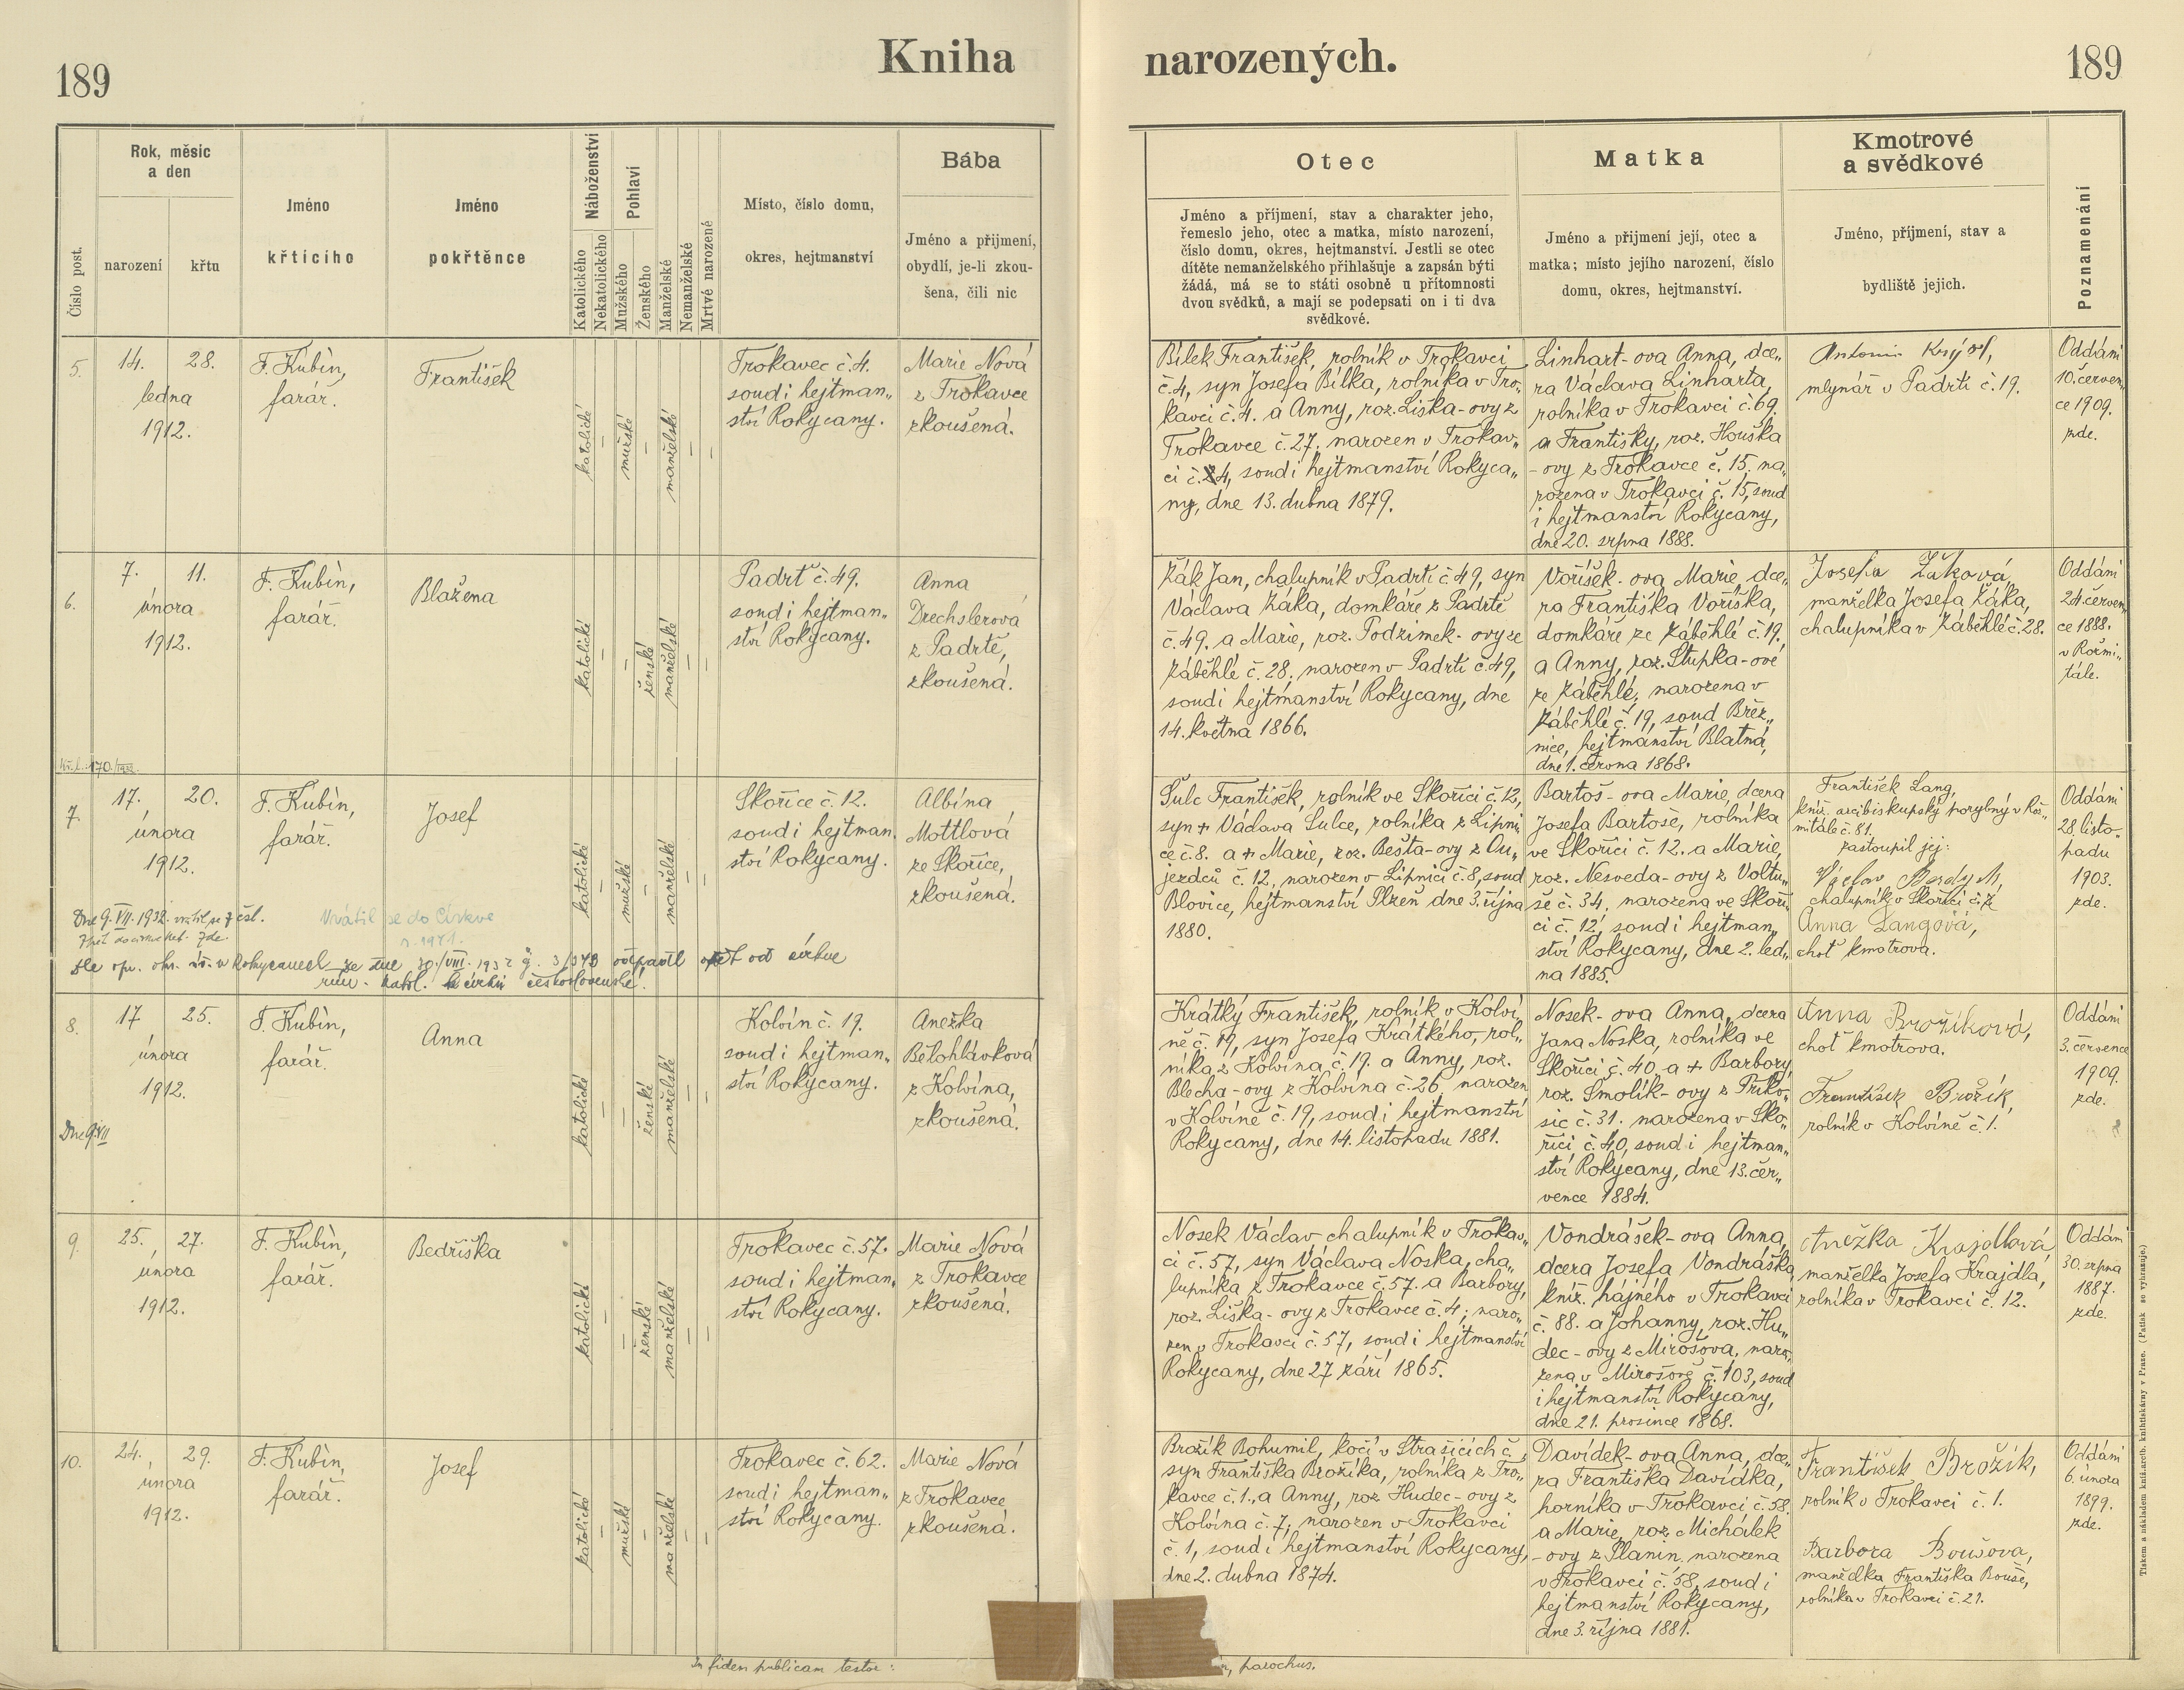 189
Kniha
narozených.
189
Číslo post.
Rok, měsíc
a den
narození
křtu
Jméno
křticího
Jméno
pokřtěnce
Náboženství
Katolického
Nekatolického
Pohlaví
Mužského
Ženského
Manželské
Nemanželské
Mrtvé narozené
Místo, číslo domu,
okres, hejtmanství
Bába
Jméno a přijmení,
obydlí, je-li zkou-
šena, čili nic
Otec
Jméno a příjmení, stav a charakter jeho,
řemeslo jeho, otec a matka, místo narození,
číslo domu, okres, hejtmanství. Jestli se otec
dítěte nemanželského přihlašuje a zapsán býti
žádá, má se to státi osobně u přítomnosti
dvou svědků, a mají se podepsati on i ti dva
svědkové.
Matka
Jméno a přijmení její, otec a
matka; místo jejího narození, číslo
domu, okres, hejtmanství.
Kmotrové
a svědkové
Jméno, příjmení, stav a
bydliště jejich.
Poznamenání
5.
14. 28.
ledna
1912.
F. Kubín,
farář.
František
katolické
–
mužské
–
manželské
–
–
Trokavec č. 4.
soud i hejtman„
ství Rokycany.
Marie Nová
z Trokavce
zkoušená.
Bílek František, rolník v Trokavci
č. 4, syn Josefa Bílka, rolníka v Tro„
kavci č. 4. a Anny, roz. Liška-ovy z
Trokavce č. 27, narozen v Trokav„
ci č. 4, soud i hejtmanství Rokyca„
ny, dne 13. dubna 1879.
Linhart-ova Anna, dce„
ra Václava Linharta,
rolníka v Trokavci č. 69.
a Františky, roz. Houška
-ovy z Trokavce č. 15, na„
rozena v Trokavci č. 15, soud
i hejtmanství Rokycany,
dne 20. srpna 1888.
Antonín
mlynář v Padrti č. 19.
Oddáni
10. červen„
ce 1909.
zde.
6.
7. 11.
února
1912.
F. Kubín,
farář.
Blažena
katolické
–
–
ženské
manželské
–
–
Padrť č. 49.
soud i hejtman„
ství Rokycany.
Anna
Drechslerova
z Padrtě,
zkoušená.
Žák Jan, chalupník v Padrti č. 49, syn
Václava Žáka, domkáře z Padrtě
č. 49. a Marie, roz. Podzimek-ovy ze
Záběhlé č. 28, narozen v Padrti č. 49,
soud i hejtmanství Rokycany, dne
14. května 1866.
Voříšek-ova Marie, dce„
ra Františka Voříška,
domkáře ze Záběhlé č. 19,
a Anny, roz. Stupka-ové
ze Záběhlé, narozena v
Záběhlé č. 19, soud Břez„
nice, hejtmanství Blatná,
dne 1. června 1868.
Josefa Žáková,
manželka Josefa Žáka,
chalupníka v Záběhlé č. 28.
Oddáni
24. červen„
ce 1888.
v Rožmi„
tále.
7.
17. 20.
února
1912.
F. Kubín,
farář.
Josef
katolické
–
mužské
–
manželské
–
–
Skořice č. 12.
soud i hejtman„
ství Rokycany.
Albína
Mottlová
ze Skořice,
zkoušená.
Šulc František, rolník ve Skořici č. 12,
syn + Václava Šulce, rolníka z Lipni„
ce č. 8. a + Marie, roz. Bešta-ovy z Ou„
jezdců č. 12, narozen v Lipnici č. 8, soud
Blovice, hejtmanství Plzeň dne 3. října
1880.
Bartoš-ova Marie, dcera
Josefa Bartoše, rolníka
ve Skořici č. 12. a Marie,
roz. Nesveda-ovy z Voltu„
še č. 34, narozena ve Skoři„
ci č. 12, soud i hejtman„
ství Rokycany, dne 2. led„
na 1885.
František Lang,
kníž. arcibiskupský porybný v Rož„
mitále č. 81.
zastoupil jej:
Václav
chalupník v Skořici č. 7
Anna Langová,
choť kmotrova.
Oddáni
28. listo„
padu
1903.
zde.
Dne 9. VII. 1932. vrátil se z čsl.
Vrátil se do Církve
r. 1971.
odpadl opět od církve
řím. katol. k církvi československé.
8.
17. 25.
února
1912.
Dne 9. VII
F. Kubín,
farář.
Anna
katolické
–
–
ženské
manželské
–
–
Kolvín č. 19.
soud i hejtman„
ství Rokycany.
Anežka
Bělohlávková
z Kolvína,
zkoušená.
Krátký František, rolník v Kolví„
ně č. 19, syn Josefa Krátkého, rol„
níka z Kolvína č. 19. a Anny, roz.
Blecha-ovy z Kolvína č. 26, narozen
v Kolvíně č. 19, soud i hejtmanství
Rokycany, dne 14. listopadu 1881.
Nosek-ova Anna, dcera
Jana Noska, rolníka ve
Skořici č. 40, a + Barbory,
roz. Smolík-ovy z Příko„
sic č. 31. narozena v Sko„
řici č. 40, soud i hejtman„
ství Rokycany, dne 13. čer„
vence 1884.
Anna Brožíková,
choť kmotrova.
František Brožík,
rolník v Kolvíně č. 1.
Oddáni
3. července
1909.
zde.
9.
25. 27.
února
1912.
F. Kubín,
farář.
Bedřiška
katolické
–
–
ženské
manželské
–
–
Trokavec č. 57.
soud i hejtman„
ství Rokycany.
Marie Nová
z Trokavce
zkoušená.
Nosek Václav chalupník v Trokav„
ci č. 57, syn Václava Noska, cha„
lupníka z Trokavce č. 57. a Barbory,
roz. Liška-ovy z Trokavce č. 4; naro„
zen v Trokavci č. 57, soud i hejtmanství
Rokycany, dne 27 září 1865.
Vondrášek-ova Anna,
dcera Josefa Vondráška,
kníž. hájného v Trokavci
č. 88. a Johanny, roz. Hu„
dec-ovy z Mirošova, naro„
zena v Mirošově č. 103, soud
i hejtmanství Rokycany,
dne 21. prosince 1868.
Anežka Krajdlová,
manželka Josefa Krajdla,
rolníka v Trokavci č. 12.
Oddáni
30. srpna
1887.
zde.
10.
24. 29.
února
1912.
F. Kubín,
farář.
Josef
katolické
–
mužské
–
manželské
–
–
Trokavec č. 62.
soud i hejtman„
ství Rokycany.
Marie Nová
z Trokavce
zkoušená.
Brožík Bohumil, kočí v Strašicích č.
syn Františka Brožíka, rolníka z Tro„
kavce č. 1., a Anny, roz Hudec-ovy z
Kolvína č. 7, narozen v Trokavci
č. 1, soud i hejtmanství Rokycany,
dne 2. dubna 1874.
Davídek-ova Anna, dce„
ra Františka Davídka,
horníka v Trokavci č. 58.
a Marie, roz Michálek
-ovy z Planin narozena
v Trokavci č. 58, soud i
hejtmanství Rokycany,
dne 3. října 1881.
František Brožík,
rolník v Trokavci č. 1.
Barbora Boušova,
manědka Františka Bouše,
rolníka v Trokavci č. 21.
Oddáni
6. února
1899.
zde.
In fidem publicam testor:
parochus.